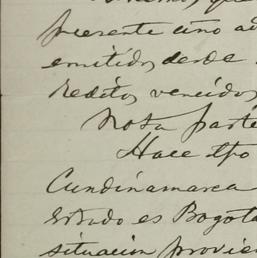 presente año a
emitidos desde
reditos vencidos
Nota parte
Hace tpo
Cundinamarca
Estado es Bogota
situacion provie